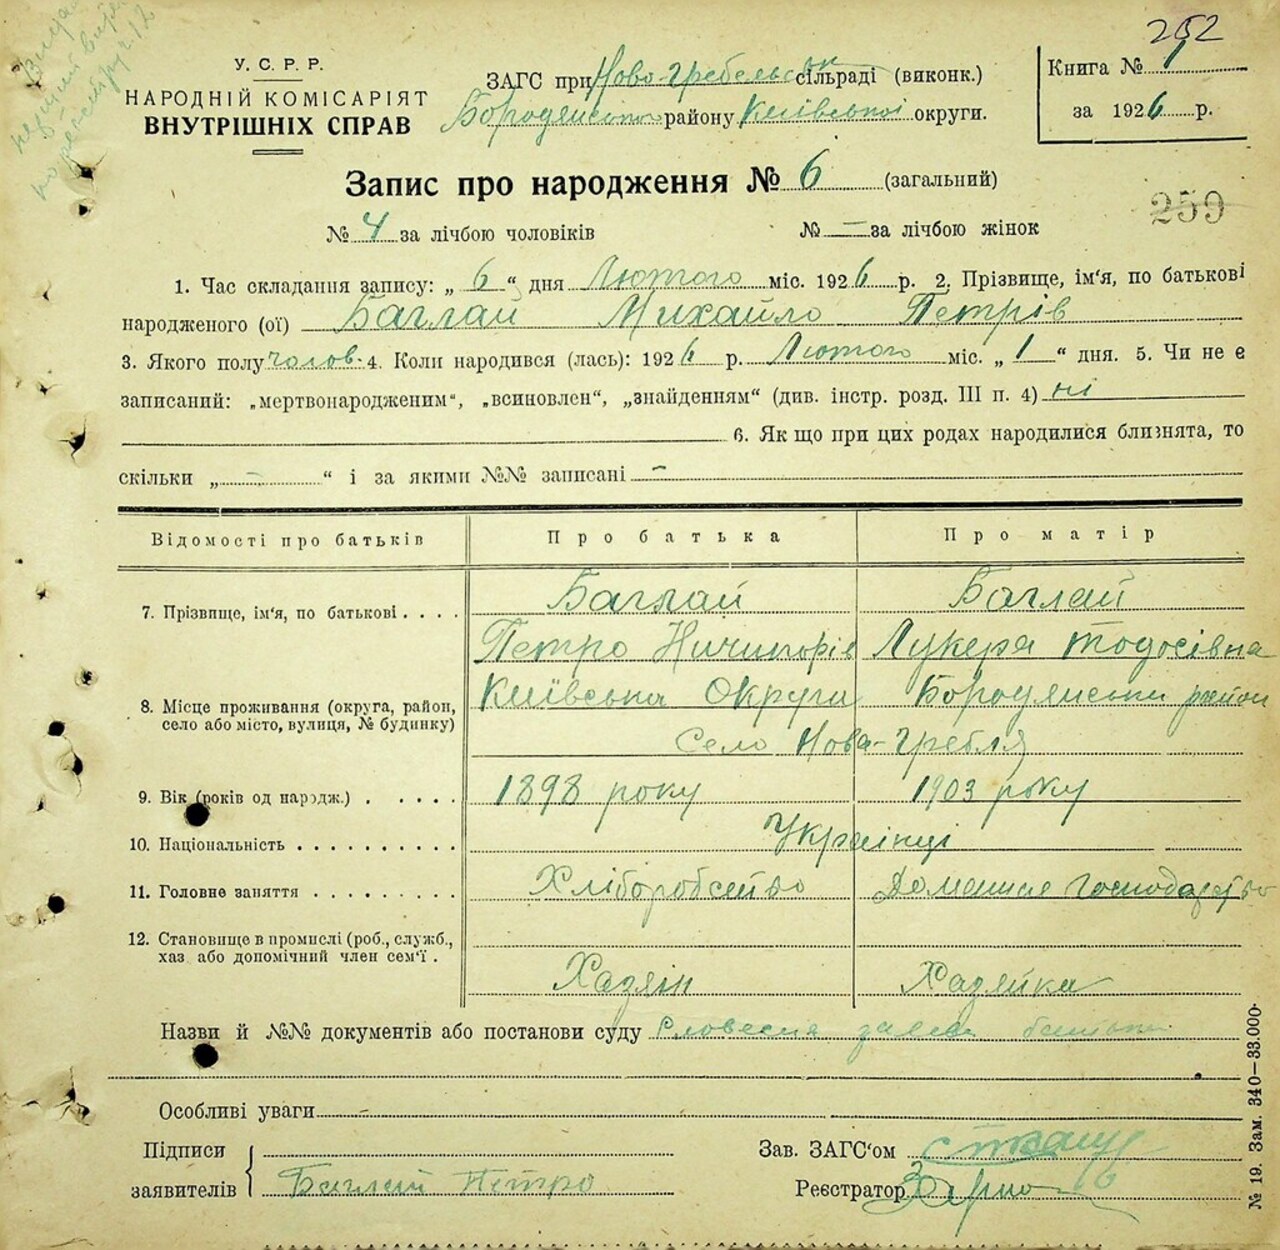 252
У. С. Р. Р.
НАРОДНІЙ КОМІСАРІЯТ
ВНУТРІШНІХ СПРАВ
ЗАГС при Ново-Гребельськ сільраді (виконк.)
Бородянського району Київської округи.
Книга № 1
за 1926 р.
Запис про народження № 6 (загальний)
259
№ 4 за лічбою чоловіків № — за лічбою жінок
1. Час складання запису: „ 6 “ дня Лютого міс. 1926 р. 2. Прізвище, ім'я, по батькові
народженого (ої) Баглай Михайло Петрів
3. Якого полу чолов. 4. Коли народився (лась): 1926 р. Лютого міс. „ 1 “ дня. 5. Чи не є
записаний: „мертвонародженим“, „всиновлен“, „знайденням“ (див. інстр. розд. III п. 4) ні
6. Як що при цих родах народилися близнята, то
скільки „ - “ і за якими №№ записані -
Відомості про батьків Про батька Про матір
7. Прізвище, ім'я, по батькові . . . . Баглай Баглай
Петро Ничипорів Лукера Тодосівна
8. Місце проживання (округа, район, Київська Округа Бородянський район
село або місто, вулиця, № будинку) Село Нова-Гребля
9. Вік (років од народж.) . . . . . 1898 року 1903 року
10. Національність . . . . . . . . . . Українці
11. Головне заняття . . . . . . . . . Хліборобство Домашнє господарство
12. Становище в промислі (роб., служб.,
хаз або допомічний член сем'ї . Хазяін Хазяйка
Назви й №№ документів або постанови суду Словесна заява батька
Особливі уваги -
Підписи
заявителів Баглай Петро
Зав. ЗАГС'ом
Реєстратор
№ 19. Зам. 340—33.000·